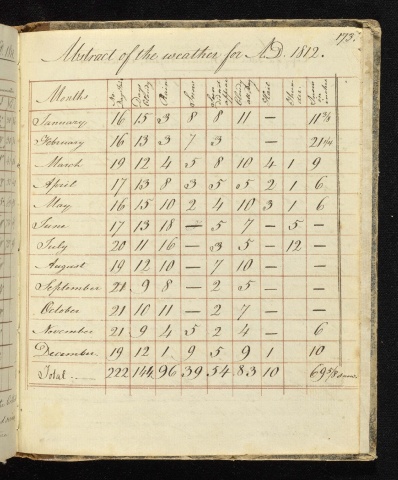 173.
Abstract of the weather for A.D. 1812.
Months Days Cloudy Rain Snow Snow in inches
January 16 15 3 8 8 11 — 11 3/8
February 16 13 3 7 3 — 21 1/4
March 19 12 4 5 8 10 4 1 9
April 17 13 8 3 5 5 2 1 6
May 16 15 10 2 4 10 3 1 6
June 17 13 18 — 5 7 — 5 —
July 20 11 16 — 3 5 — 12 —
August 19 12 10 — 7 10 — —
September 21 9 8 — 2 5 — —
October 21 10 11 — 2 7 — —
November 21 9 4 5 2 4 — 6
December 19 12 1 9 5 9 1 10
Total 222 144 96 39 54 83 10 69 5/8